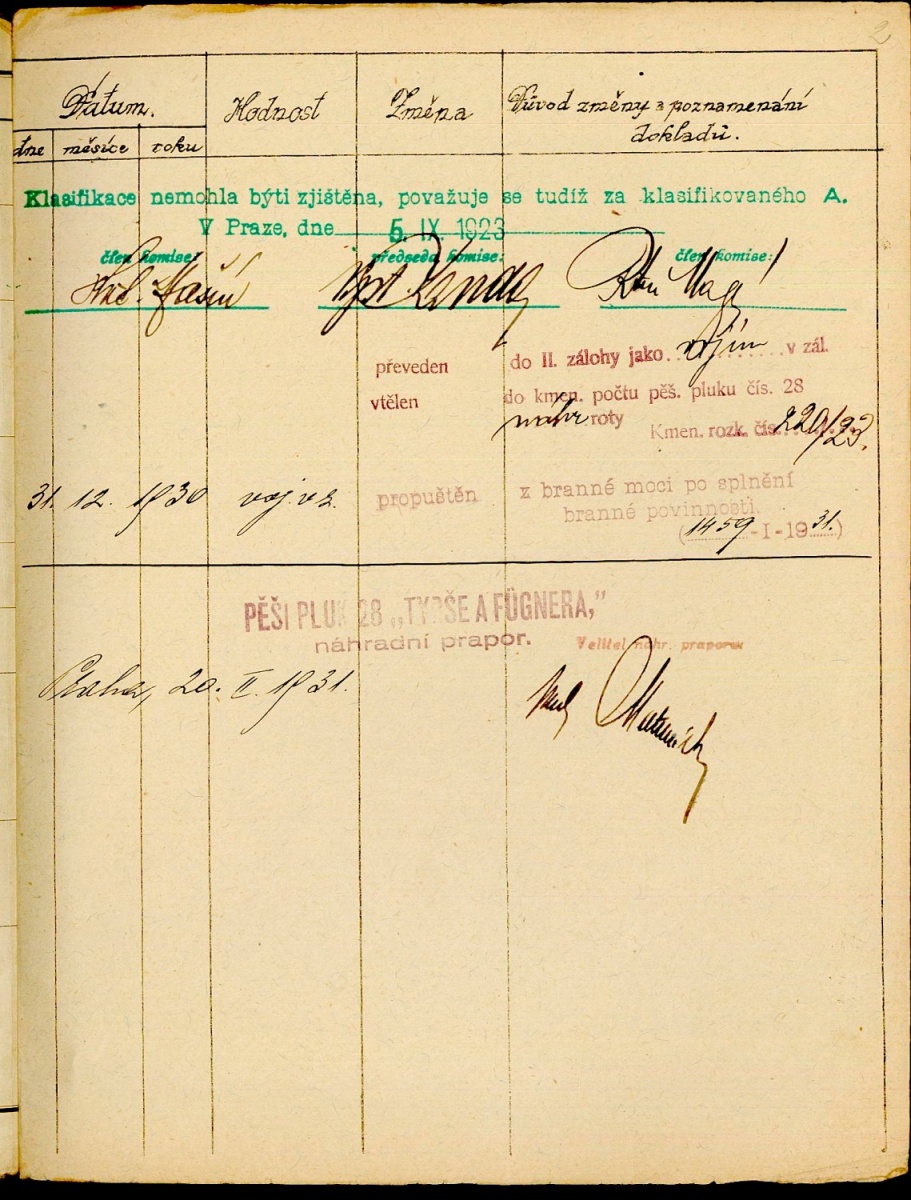 2
Datum. Hodnost Změna Důvod změny a poznamenání
dokladů.
dne měsíce roku
Klasifikace nemohla býti zjištěna, považuje se tudíž za klasifikovaného A.
V Praze, dne 5 IX. 1923
člen komise: předseda komise: člen komise:
převeden do II. zálohy jako vojín v zál.
vtělen do kmen. počtu pěš. pluku čís. 28
náhr roty Kmen. rozk. čís. 220/23.
31. 12. 1930 voj. v z. propuštěn z branné moci po splnění
branné povinnosti.
(1459-I-1931.)
PĚŠÍ PLUK 28 „TYRŠE A FÜGNERA,"
náhradní prapor. Velitel náhr. praporu
Praha, 20. II. 1931.